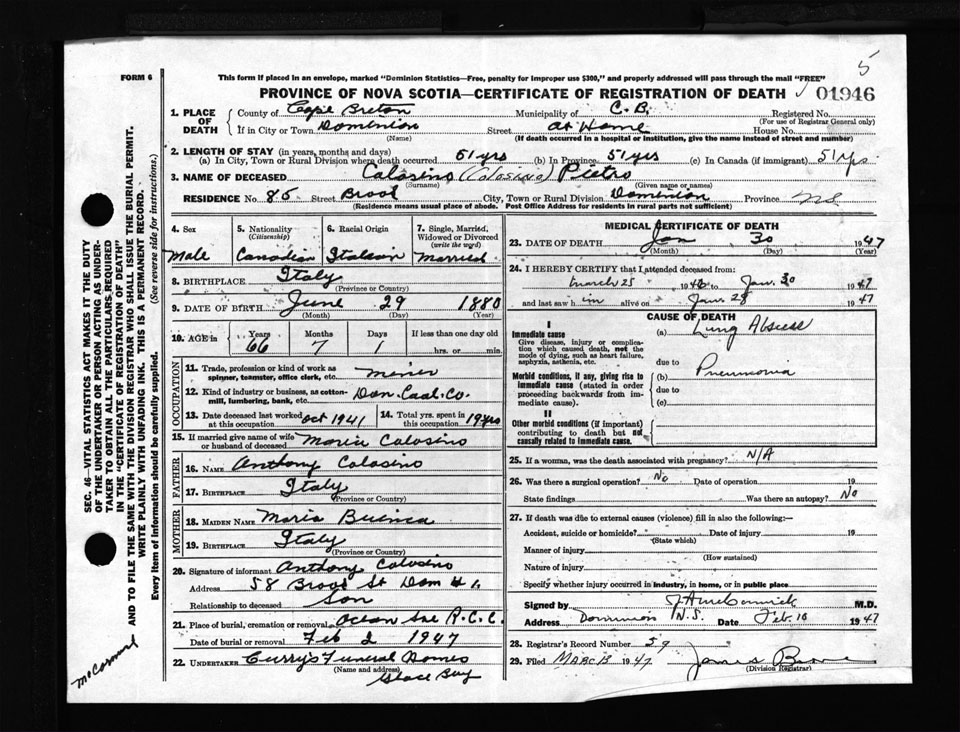 5
FORM 6
This form if placed in an envelope, marked "Dominion Statistics—Free, penalty for improper use $300," and properly addressed will pass through the mail "FREE"
PROVINCE OF NOVA SCOTIA—CERTIFICATE OF REGISTRATION OF DEATH
01946
1. PLACE OF DEATH
County of Cape Breton
Municipality of C.B.
Registered No.
(For use of Registrar General only)
If in City or Town Dominion
(Name)
Street at Home
House No.
(If death occurred in a hospital or institution, give the name instead of street and number)
2. LENGTH OF STAY (in years, months and days)
(a) In City, Town or Rural Division where death occurred 51 yrs (b) In Province 51 yrs (c) In Canada (if immigrant) 51 yrs.
3. NAME OF DECEASED Calosino (Colosino) Pietro
(Surname) (Given name or names)
RESIDENCE No. 85 Street Brook City, Town or Rural Division Dominion Province N.S.
(Residence means usual place of abode. Post Office Address for residents in rural parts not sufficient)
4. Sex
Male
5. Nationality
(Citizenship)
Canadian
6. Racial Origin
Italian
7. Single, Married, Widowed or Divorced
(write the word)
Married
8. BIRTHPLACE Italy
(Province or Country)
9. DATE OF BIRTH June 29 1880
(Month) (Day) (Year)
10. AGE in
Years Months Days If less than one day old
66 7 1 hrs. or min.
OCCUPATION
11. Trade, profession or kind of work as spinner, teamster, office clerk, etc. miner
12. Kind of industry or business, as cotton-mill, lumbering, bank, etc. Dom. Coal. Co.
13. Date deceased last worked at this occupation Oct 1941
14. Total yrs. spent in this occupation
15. If married give name of wife or husband of deceased Maria Calosino
FATHER
16. NAME Anthony Calosino
17. BIRTHPLACE Italy
(Province or Country)
MOTHER
18. MAIDEN NAME Maria
19. BIRTHPLACE Italy
(Province or Country)
20. Signature of informant Anthony Calosino
Address 58 Brook St Dom # 1,
Relationship to deceased Son
21. Place of burial, cremation or removal Ocean Ave R.C.C.
Date of burial or removal Feb 2 1947
22. UNDERTAKER Curry's Funeral Homes
(Name and address)
Glace Bay
MEDICAL CERTIFICATE OF DEATH
23. DATE OF DEATH Jan 30 1947
(Month) (Day) (Year)
24. I HEREBY CERTIFY that I attended deceased from:
March 25 19 to Jan. 30 1947
and last saw him alive on Jan. 28 1947
CAUSE OF DEATH
I
Immediate cause
Give disease, injury or complication which caused death, not the mode of dying, such as heart failure, asphyxia, asthenia, etc.
(a) Lung Abscess
due to
Morbid conditions, if any, giving rise to immediate cause (stated in order proceeding backwards from immediate cause).
(b) Pneumonia
due to
(c)
II
Other morbid conditions (if important) contributing to death but not causally related to immediate cause.
25. If a woman, was the death associated with pregnancy? N/A
26. Was there a surgical operation? No Date of operation 19
State findings Was there an autopsy? No
27. If death was due to external causes (violence) fill in also the following:—
Accident, suicide or homicide? Date of injury 19
(State which)
Manner of injury
(How sustained)
Nature of injury
Specify whether injury occurred in industry, in home, or in public place
Signed by J A McCormick M.D.
Address Dominion N.S. Date Feb. 10 1947
28. Registrar's Record Number 59
29. Filed MARCH 1947 James
(Division Registrar)
SEC. 46—VITAL STATISTICS ACT MAKES IT THE DUTY
OF THE UNDERTAKER OR PERSON ACTING AS UNDER-
TAKER TO OBTAIN ALL THE PARTICULARS REQUIRED
IN THE "CERTIFICATE OF REGISTRATION OF DEATH"
AND TO FILE THE SAME WITH THE DIVISION REGISTRAR WHO SHALL ISSUE THE BURIAL PERMIT.
WRITE PLAINLY WITH UNFADING INK. THIS IS A PERMANENT RECORD.
Every item of information should be carefully supplied. (See reverse side for instructions.)
McCormick